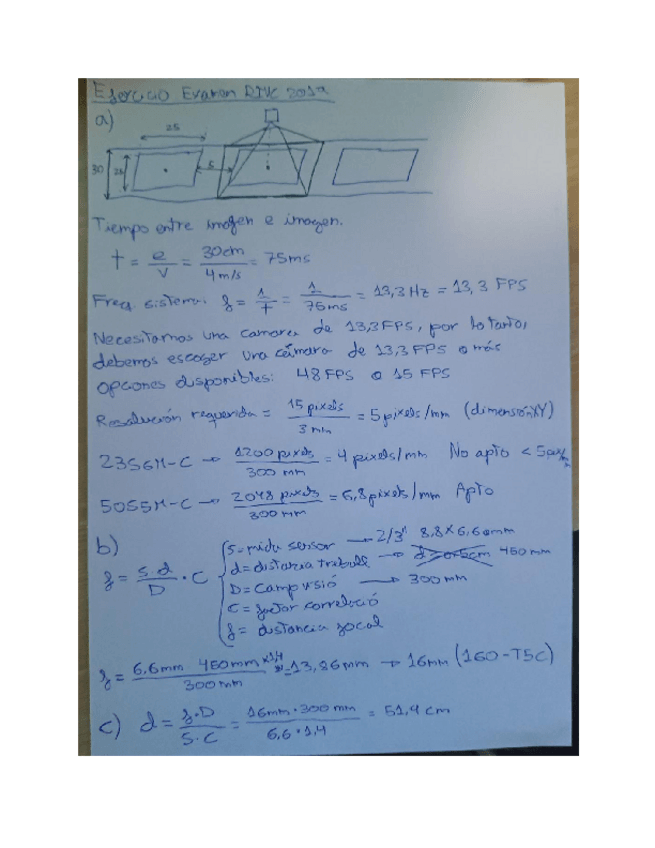 Ejercicio Examen RIVC 2019
a)
25
30
25
5
Tiempo entre imagen e imagen.
t = e/v = 30cm/4m/s = 75ms
Freq. sistema: f = 1/t = 1/75ms = 13,3Hz = 13,3 FPS
Necesitamos una camara de 13,3FPS, por lo tanto,
debemos escoger una cámara de 13,3FPS o más
opciones disponibles: 48FPS o 15 FPS
Resolución requerida = 15 pixels/3mm = 5 pixels/mm (dimensión XY)
2356M-C → 1200 pixels/300 mm = 4 pixels/mm No apto < 5
5055M-C → 2048 pixels/300mm = 6,8 pixels/mm Apto
b)
f = S·d/D · C
S = mida sensor → 2/3" 8,8 x 6,6 mm
d = distáncia treball → 450 mm
D = camp visió → 300 mm
C = factor correlació
f = distancia focal
f = 6,6mm 450mm x 1,4/300mm = 13,86mm → 16mm (160-T5C)
c) d = f·D/S·C = 16mm · 300mm/6,6 · 1,4 = 51,9 cm